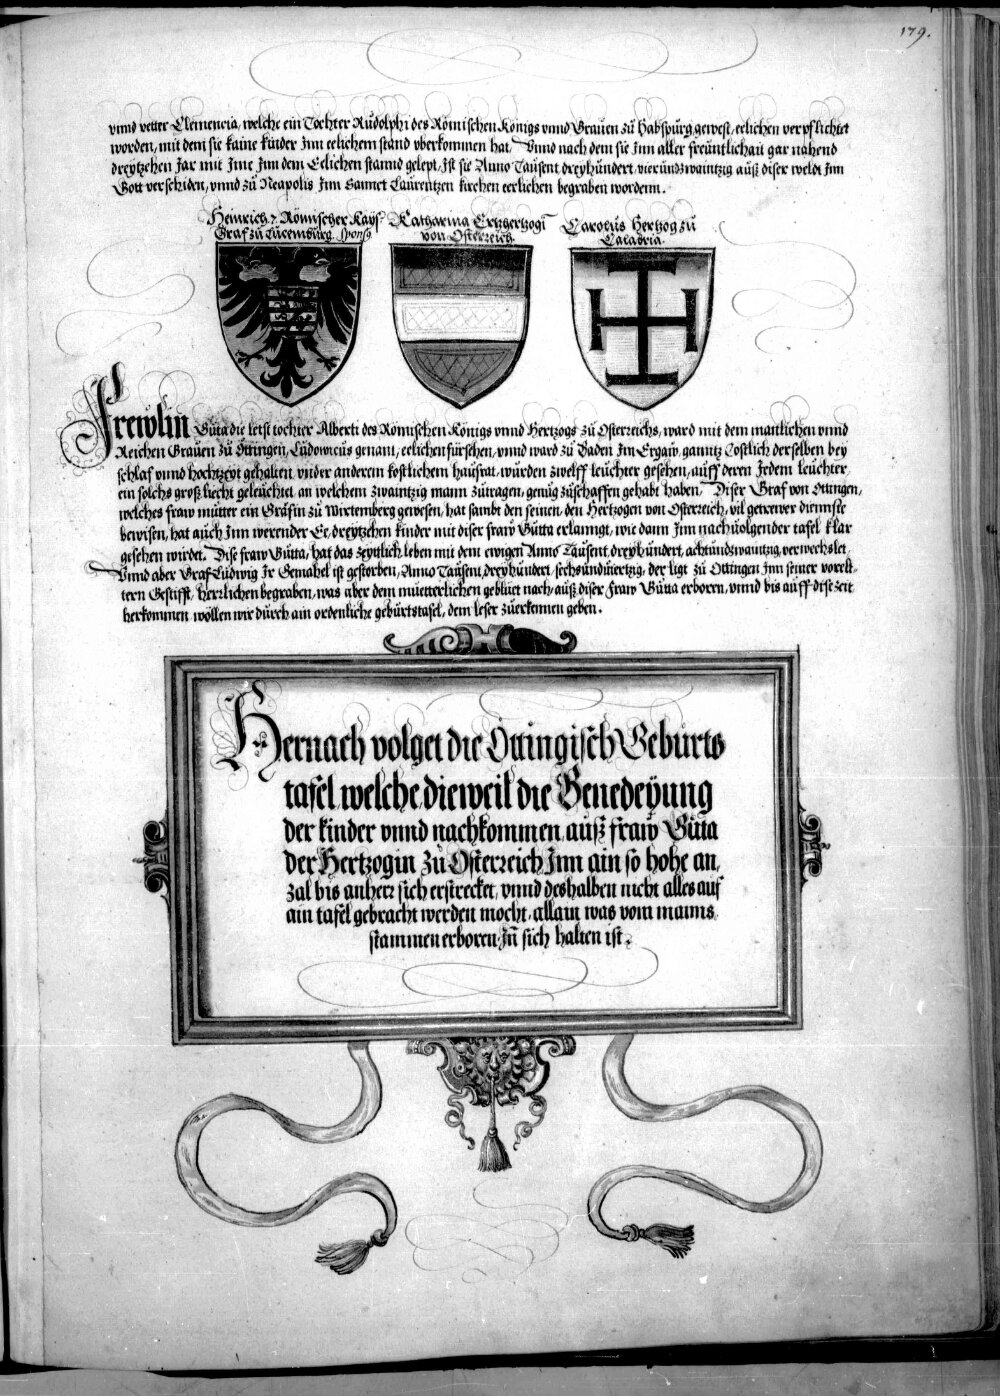 179.
vnnd vetter Clemencia, welche ein Tochter Rŭdolphi des Römischen Königs vnnd Graŭen zŭ Habspŭrg gewest, eelichen verpflichtet
worden, mit dem sie kaine kinder Inn eelichem stand vberkommen hat, Vnnd nach dem sie Inn aller freŭntlichait gar nahend
dreytzehen Jar mit Ime Inn dem Eelichen stannd gelept, Ist sie Anno Taŭsent dreyhŭndert, vierŭndzwaintzig aŭß diser weldt Inn
Gott verschiden, vnnd zŭ Neapolis Inn Sannct Laŭrentzen kirchen eerlichen begraben wordenn.
Heinrich 7 Römischer Kays:
Graf zŭ Lŭcembŭrg. Spons9
Katharina Ertzhertzogi
von Österreich.
Carolŭs Hertzog zŭ
Calabria.
Frewlin Gŭta die letst tochter Alberti des Römischen Königs vnnd Hertzogs zŭ Osterreichs, ward mit dem manlichen vnnd
Reichen Graŭen zŭ Öttingen, Lŭdowicŭs genant, eelichen fürsehen, vnnd ward zŭ Baden Im Ergaw, ganntz Costlich derselben bey
schlaf vnnd hochtzeyt gehalten, vnder anderem kostlichem haŭsrat, wŭrden zwelff leŭchter gesehen, aŭff deren Jedem leŭchter,
ein solchs groß liecht geleŭchtet an welchem zwaintzig mann zŭtragen, genŭg zŭschaffen gehabt haben, Diser Graf von Ottingen,
welches fraw mŭtter ein Gräfin zŭ Wirtemberg gewesen, hat sambt den seinen, den Hertzogen von Österreich, vil getrewer diennste
bewisen, hat aŭch Inn werender Ee, dreytzehen kinder mit diser fraw Gŭtta erlanngt, wie dann Inn nachŭolgender tafel klar
gesehen wirdet. Dise fraw Gŭtta, hat das zeytlich leben mit dem ewigen Anno Taŭsent, dreyhŭndert, achtŭndzwaintzig, verwechslet,
Vnnd aber Graf Lŭdwig Ir Gemahel ist gestorben, Anno Taŭsent, dreyhŭndert, sechsŭndŭiertzig, der ligt zŭ Ottingen Inn seiner vorelt-
tern Gestifft, herrlichen begraben, was aber dem müetterlichen geblüet nach, aŭß diser Fraw Gŭtta erboren, vnnd bis aŭff dise zeit
herkommen, wöllen wir dŭrch ain ordenliche gebŭrtstafel, dem leser zŭerkennen geben.
Hernach volget die Öttingisch Gebŭrts
tafel, welche, dieweil die Benedeÿung
der kinder vnnd nachkommen, aŭß fraw Gŭta
der Hertzogin zŭ Osterreich Inn ain so hohe an,
zal bis anherz sich erstrecket, vnnd deshalben nicht alles aŭf
ain tafel gebracht werden mocht, allain was vom manns
stammen erboren Zŭ sich halten ist.